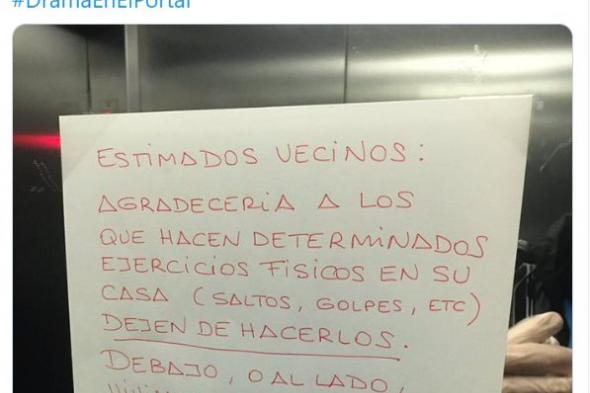 #DramaEnElPortal
ESTIMADOS VECINOS:
AGRADECERIA A LOS
QUE HACEN DETERMINADOS
EJERCICIOS FISICOS EN SU
CASA (SALTOS, GOLPES, ETC)
DEJEN DE HACERLOS.
DEBAJO, O AL LADO,